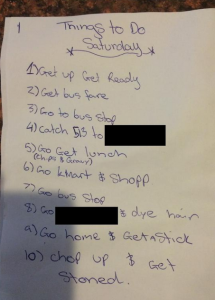 1
Things to Do
Saturday
1) Get up Get Ready
2) Get bus fare
3) Go to bus stop
4) Catch to
5) Go Get lunch
(chips & Gravy)
6) Go kmart & Shopp
7) Go bus stop
8) Go & dye hair
9) Go home & Get a Stick
10) chop up & Get
Stoned.